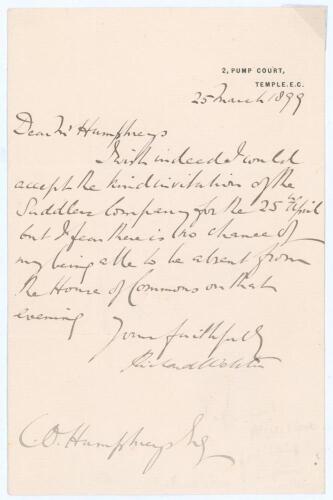 2, PUMP COURT,
TEMPLE. E.C.
25 March 1899
Dear Mr Humphreys
I wish indeed I could
accept the kind invitation of the
Saddlers Company for the 25th April
but I fear there is no chance of
my being able to be absent from
the House of Commons on that
evening
Yours faithfully
Richard Webster
C. O. Humphreys Esq